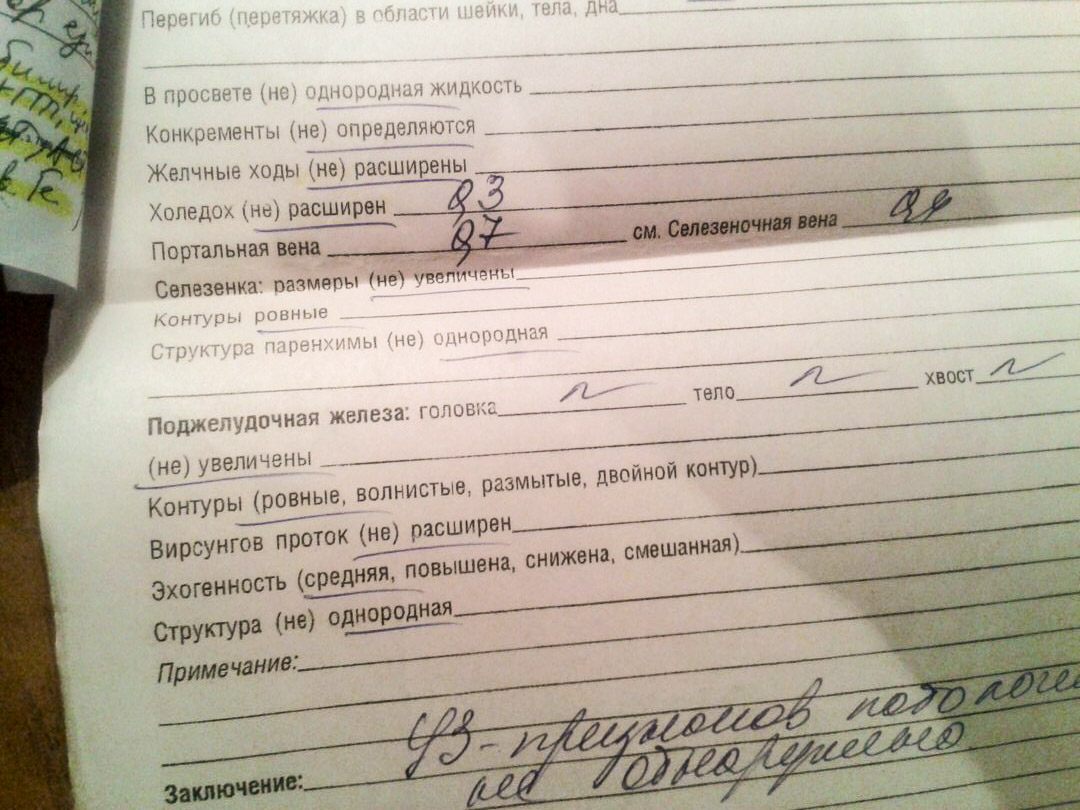 Перегиб (перетяжка) в области шейки, тела, дна
В просвете (не) однородная жидкость
Конкременты (не) определяются
Желчные ходы (не) расширены
Холедох (не) расширен 0,3
Портальная вена 0,7 см. Селезеночная вена 0,4
Селезенка: размеры (не) увеличены
Контуры ровные
Структура паренхимы (не) однородная
Поджелудочная железа: головка N тело N хвост N
(не) увеличены
Контуры (ровные, волнистые, размытые, двойной контур)
Вирсунгов проток (не) расширен
Эхогенность (средняя, повышена, снижена, смешанная)
Структура (не) однородная
Примечание:
УЗ-признаков патологи
Заключение: не обнаружено